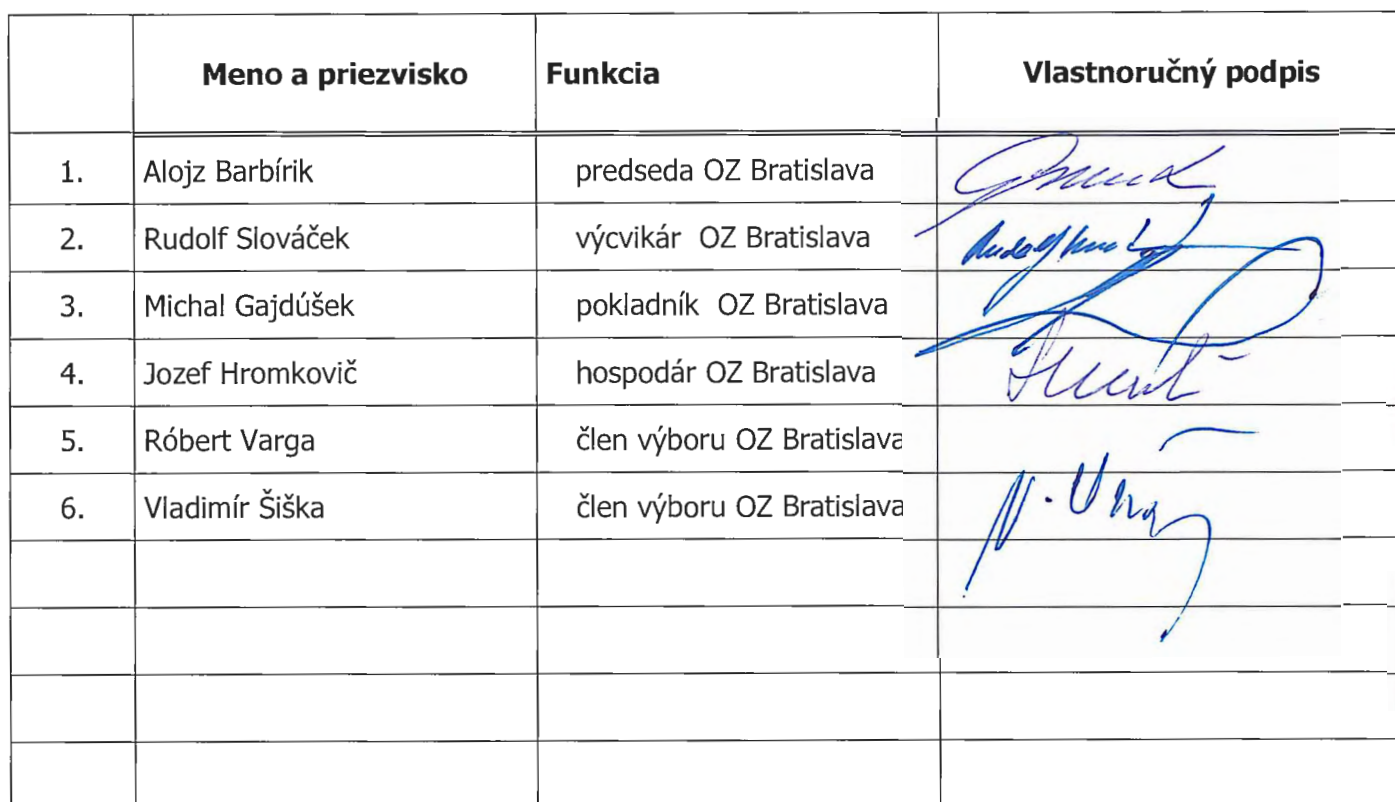 Meno a priezvisko Funkcia Vlastnoručný podpis
1. Alojz Barbírik predseda OZ Bratislava
2. Rudolf Slováček výcvikár OZ Bratislava
3. Michal Gajdúšek pokladník OZ Bratislava
4. Jozef Hromkovič hospodár OZ Bratislava
5. Róbert Varga člen výboru OZ Bratislava
6. Vladimír Šiška člen výboru OZ Bratislava